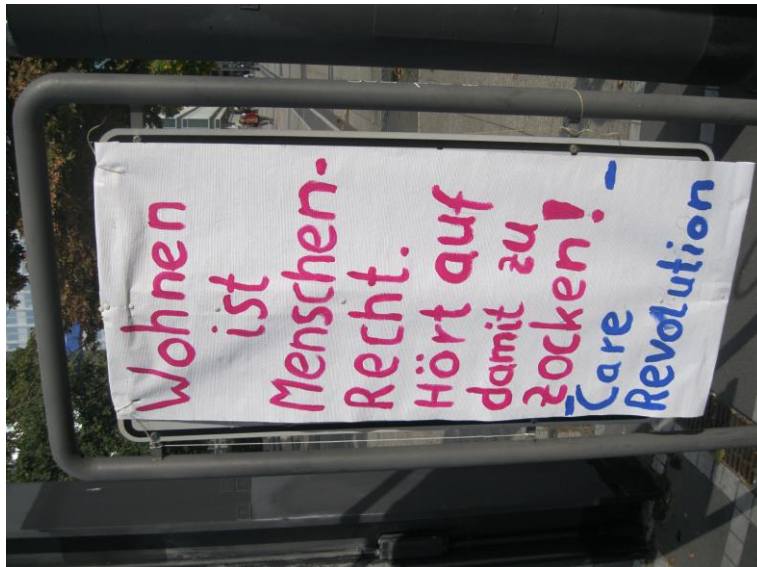 Wohnen
ist
Menschen-
Recht.
Hört auf
damit zu
zocken!
- Care -
Revolution